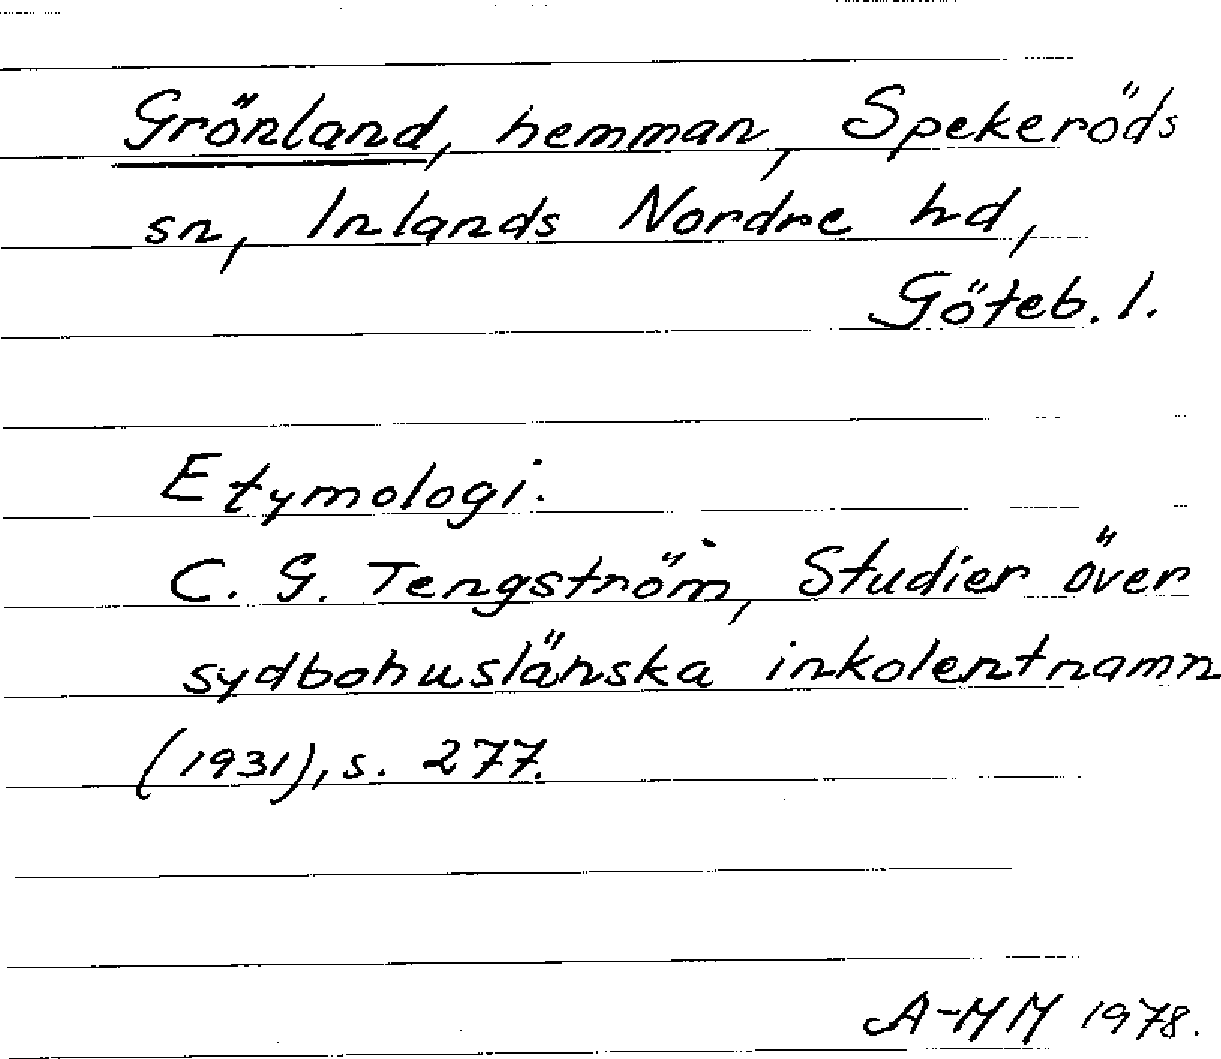 Grönland, hemman, Spekeröds
sn, Inlands Nordre hd,
Göteb. l.
Etymologi.
C. G. Tengström, Studier över
sydbohuslänska inkolentnamn
(1931), s. 277.
A-MM 1978.